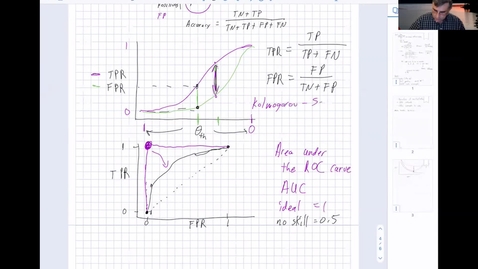 FP
Accuracy = TN + TP / TN + TP + FP + FN
1
TPR
FPR
0
1 θth 0
TPR = TP / TP + FN
FPR = FP / TN + FP
Kolmogorov - S-
1
TPR
0
0 FPR 1
Area under
the ROC curve
AUC
ideal = 1
no skill = 0.5